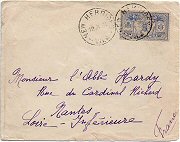 NEW HEBRIDES
Monsieur l'Abbé Hardy
Rue du Cardinal Richard
Nantes
Loire-Inférieure
France